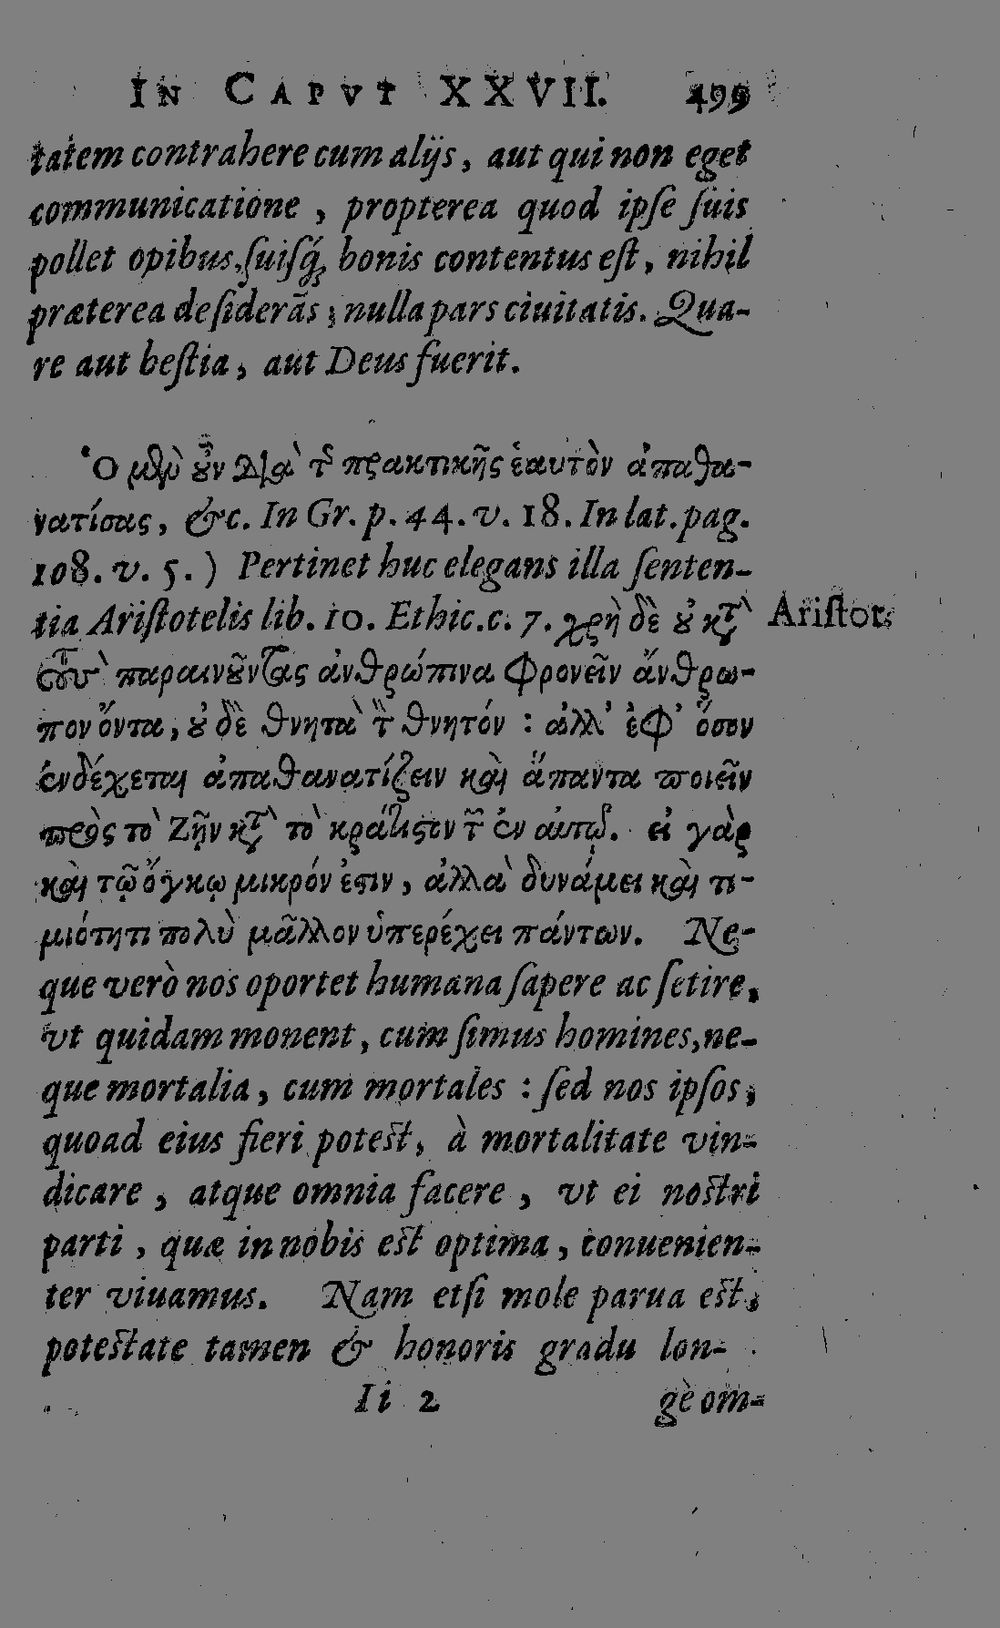 IN CAPVT XXVII. 499
tatem contrahere cum alijs, aut qui non eget
communicatione, propterea quod ipſe ſuis
pollet opibus, ſuiſq́; bonis contentus eſt, nihil
præterea deſiderãs; nulla pars ciuitatis. Qua-
re aut beſtia, aut Deus fuerit.
Ὁ μὲν οὖν διὰ τῆς πρακτικῆς ἑαυτὸν ἀπαθα-
νατίσας, &c. In Gr. p. 44. v. 18. In lat. pag.
108. v. 5.) Pertinet huc elegans illa ſenten-
tia Ariſtotelis lib. 10. Ethic. c. 7. χρὴ δὲ οὐ κατὰ Ariſtot.
τοὺς παραινοῦντας ἀνθρώπινα φρονεῖν ἄνθρω-
πον ὄντα, οὐδὲ θνητὰ τὸν θνητόν: ἀλλ' ἐφ' ὅσον
ἐνδέχεται ἀπαθανατίζειν καὶ ἅπαντα ποιεῖν
πρὸς τὸ ζῆν κατὰ τὸ κράτιστον τῶν ἐν αὐτῷ. εἰ γὰρ
καὶ τῷ ὄγκῳ μικρόν ἐστιν, ἀλλὰ δυνάμει καὶ τι-
μιότητι πολὺ μᾶλλον ὑπερέχει πάντων. Ne-
que verò nos oportet humana ſapere ac ſetire,
vt quidam monent, cum ſimus homines, ne-
que mortalia, cum mortales: ſed nos ipſos,
quoad eius fieri poteſt, à mortalitate vin-
dicare, atque omnia facere, vt ei noſtri
parti, quæ in nobis eſt optima, conuenien-
ter viuamus. Nam etſi mole parua eſt,
poteſtate tamen & honoris gradu lon-
Ii 2 gè om-